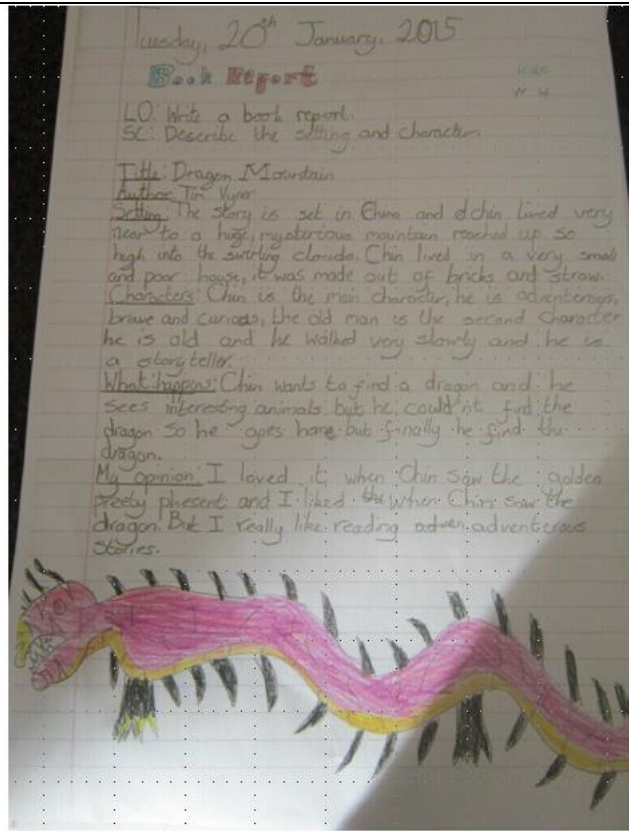 Tuesday, 20th January, 2015
Book Report
LO: Write a book report.
SC: Describe the setting and character
Title: Dragon Mountain
Author: Tim Vyner
Setting: The story is set in China and chin lived very
near to a huge, mysterious mountain reached up so
high into the swirling clouds. Chin lived in a very small
and poor house, it was made out of bricks and straw.
Characters: Chin is the main character, he is adventerous,
brave and curious, the old man is the second character
he is old and he walked very slowly and he is
a storyteller.
What happens: Chin wants to find a dragon and he
sees interesting animals but he could'nt find the
dragon so he goes home but finally he find the
dragon.
My opinion: I loved it when Chin saw the golden
preety phesent and I liked when Chin saw the
dragon. But I really like reading adven adventerous
stories.